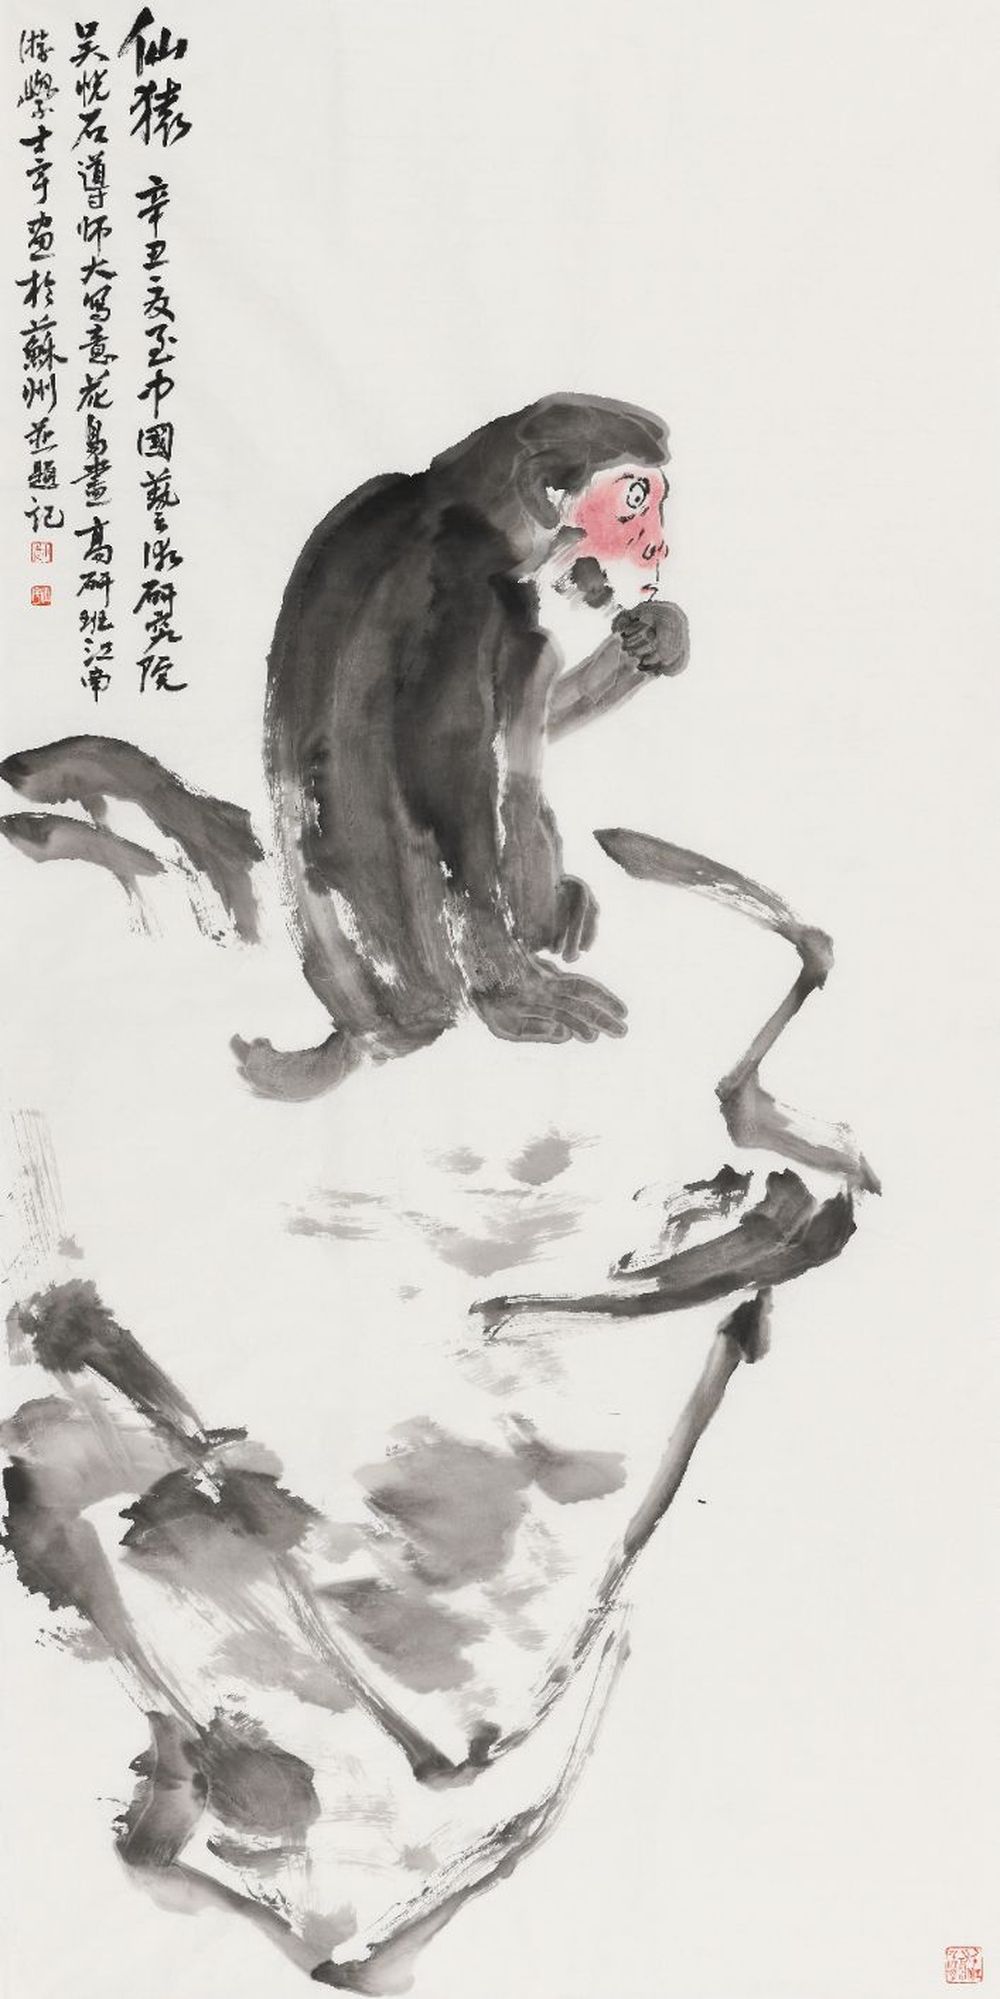 仙猿 辛丑夏至中國藝術研究院
吴悦石導師大寫意花鳥畫高研班江南
游學士宇画於蘇州並題记